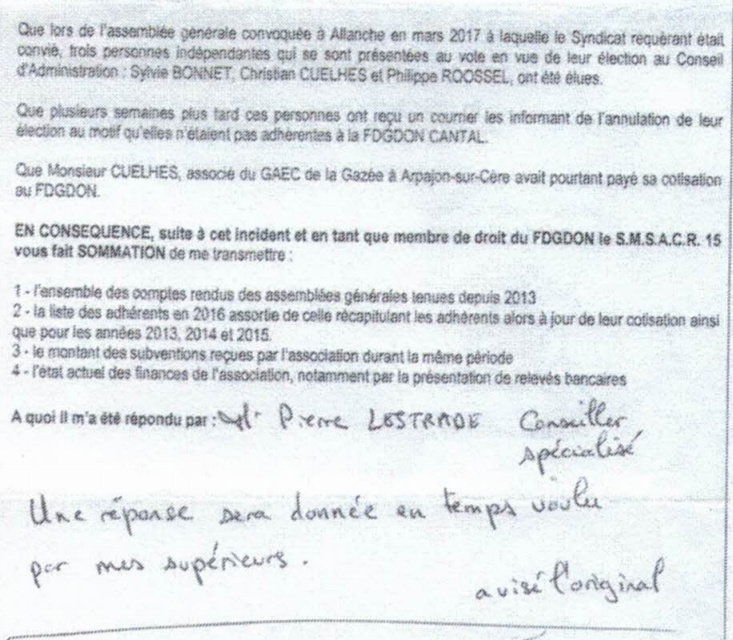 Que lors de l'assemblée générale convoquée à Allanche en mars 2017 à laquelle le Syndicat requérant était
convié, trois personnes indépendantes qui se sont présentées au vote en vue de leur élection au Conseil
d'Administration : Sylvie BONNET, Christian CUELHES et Philippe ROOSSEL, ont été élues.
Que plusieurs semaines plus tard ces personnes ont reçu un courrier les informant de l'annulation de leur
élection au motif qu'elles n'étaient pas adhérentes à la FDGDON CANTAL.
Que Monsieur CUELHES, associé du GAEC de la Gazée à Arpajon-sur-Cère avait pourtant payé sa cotisation
au FDGDON.
EN CONSEQUENCE, suite à cet incident et en tant que membre de droit du FDGDON le S.M.S.A.C.R. 15
vous fait SOMMATION de me transmettre :
1 - l'ensemble des comptes rendus des assemblées générales tenues depuis 2013
2 - la liste des adhérents en 2016 assortie de celle récapitulant les adhérents alors à jour de leur cotisation ainsi
que pour les années 2013, 2014 et 2015.
3 - le montant des subventions reçues par l'association durant la même période
4 - l'état actuel des finances de l'association, notamment par la présentation de relevés bancaires
A quoi il m'a été répondu par : Mr Pierre LESTRADE Conseiller
spécialisé
Une réponse sera donnée en temps voulu
par mes supérieurs.
a visé l'original